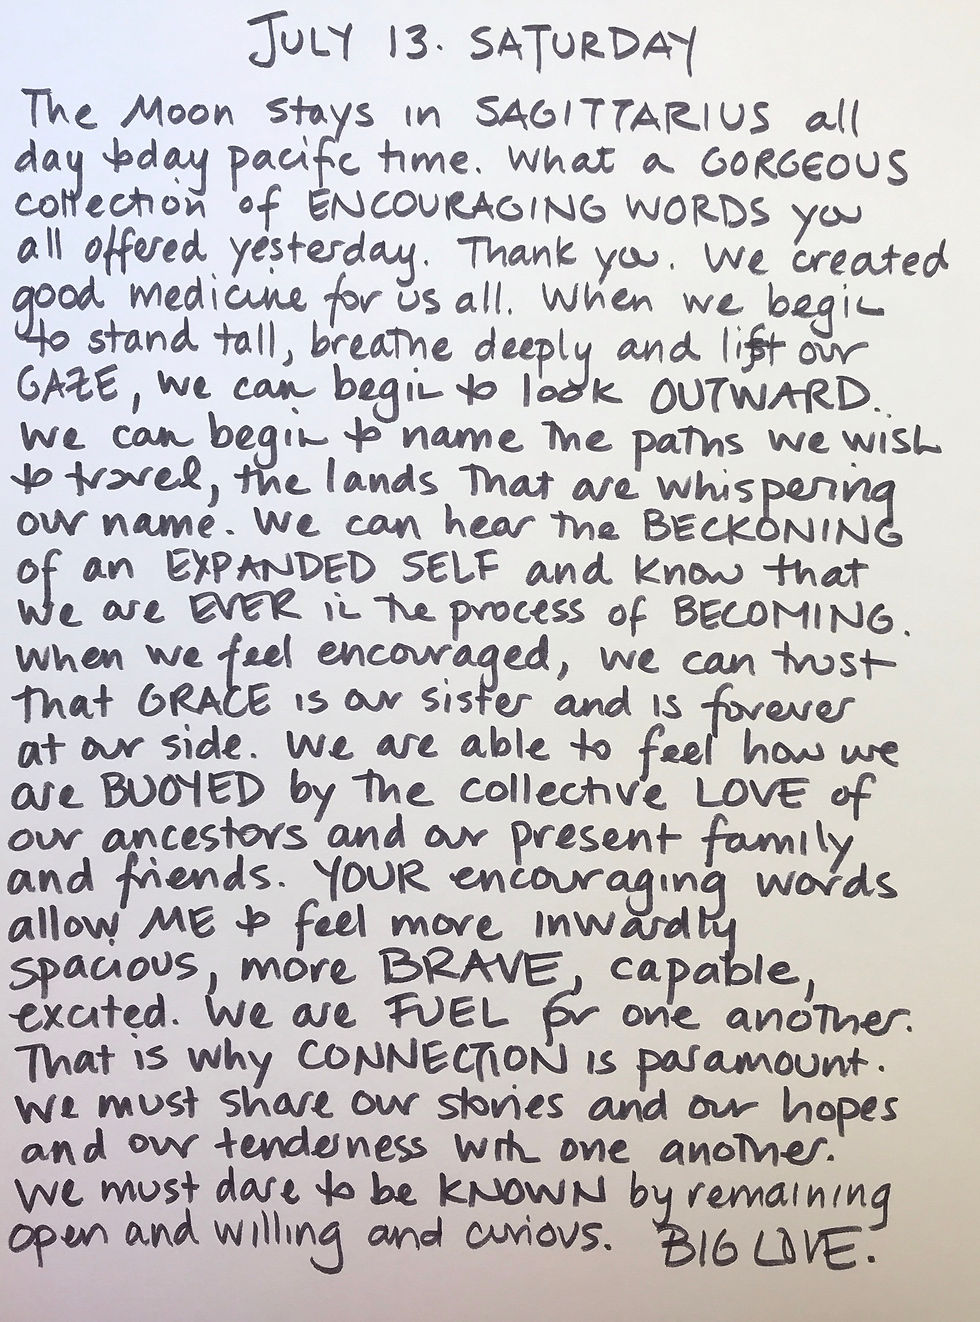 JULY 13. SATURDAY
The Moon stays in SAGITTARIUS all
day today pacific time. What a GORGEOUS
collection of ENCOURAGING WORDS you
all offered yesterday. Thank you. We created
good medicine for us all. When we begin
to stand tall, breathe deeply and lift our
GAZE, we can begin to look OUTWARD.
We can begin to name the paths we wish
to travel, the lands that are whispering
our name. We can hear the BECKONING
of an EXPANDED SELF and know that
we are EVER in the process of BECOMING.
When we feel encouraged, we can trust
that GRACE is our sister and is forever
at our side. We are able to feel how we
are BUOYED by the collective LOVE of
our ancestors and our present family
and friends. YOUR encouraging words
allow ME to feel more inwardly
spacious, more BRAVE, capable,
excited. We are FUEL for one another.
That is why CONNECTION is paramount.
We must share our stories and our hopes
and our tenderness with one another.
We must dare to be KNOWN by remaining
open and willing and curious. BIG LOVE.